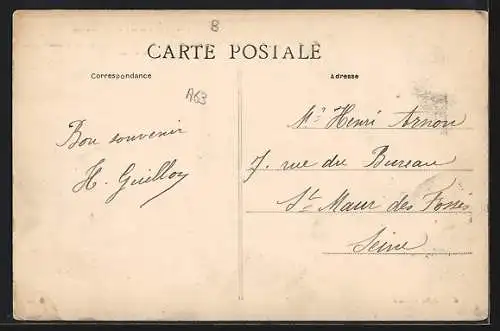 8
CARTE POSTALE
Correspondance
Adresse
A63
Bon souvenir
H. Guilloy
Mr Henri Arnon
7. rue du Bureau
St Maur des Fossés
Seine